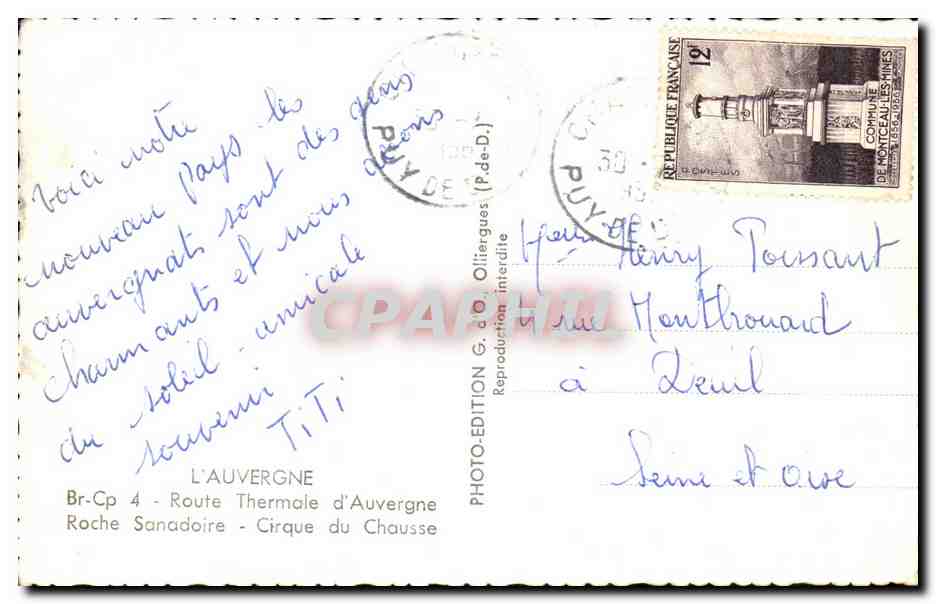 Voici notre
nouveau pays les
auvergnats sont des gens
charmants et nous avons
du soleil - amicale
souvenir
TiTi
L'AUVERGNE
Br-Cp 4 - Route Thermale d'Auvergne
Roche Sanadoire - Cirque du Chausse
PHOTO-EDITION G. d'O., Olliergues (P.-de-D.)
Reproduction interdite
PUY DE
30
PUY DE D
REPUBLIQUE FRANÇAISE
12F
POSTES
COMMUNE
DE MONTCEAU-LES-MINES
1856-1956
Henry Toussant
4 rue Montrouard
à Deuil
Seine et Oise
CPAPHIL